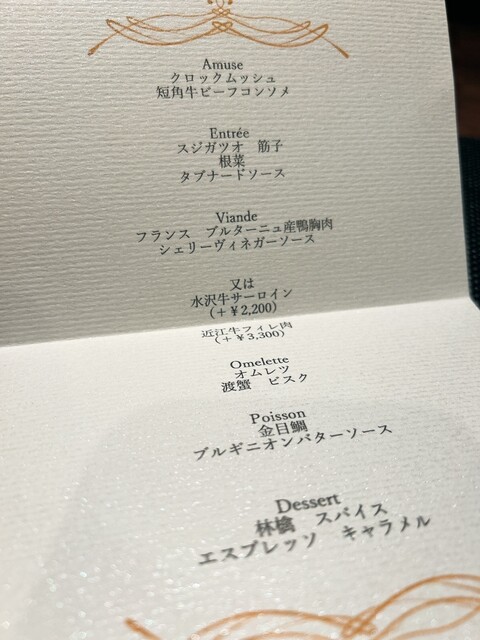 Amuse
クロックムッシュ
短角牛ビーフコンソメ
Entrée
スジガツオ　筋子
根菜
タプナードソース
Viande
フランス　ブルターニュ産鴨胸肉
シェリーヴィネガーソース
又は
水沢牛サーロイン
(＋￥2,200)
近江牛フィレ肉
(＋￥3,300)
Omelette
オムレツ
渡蟹　ビスク
Poisson
金目鯛
ブルギニオンバターソース
Dessert
林檎　スパイス
エスプレッソ　キャラメル